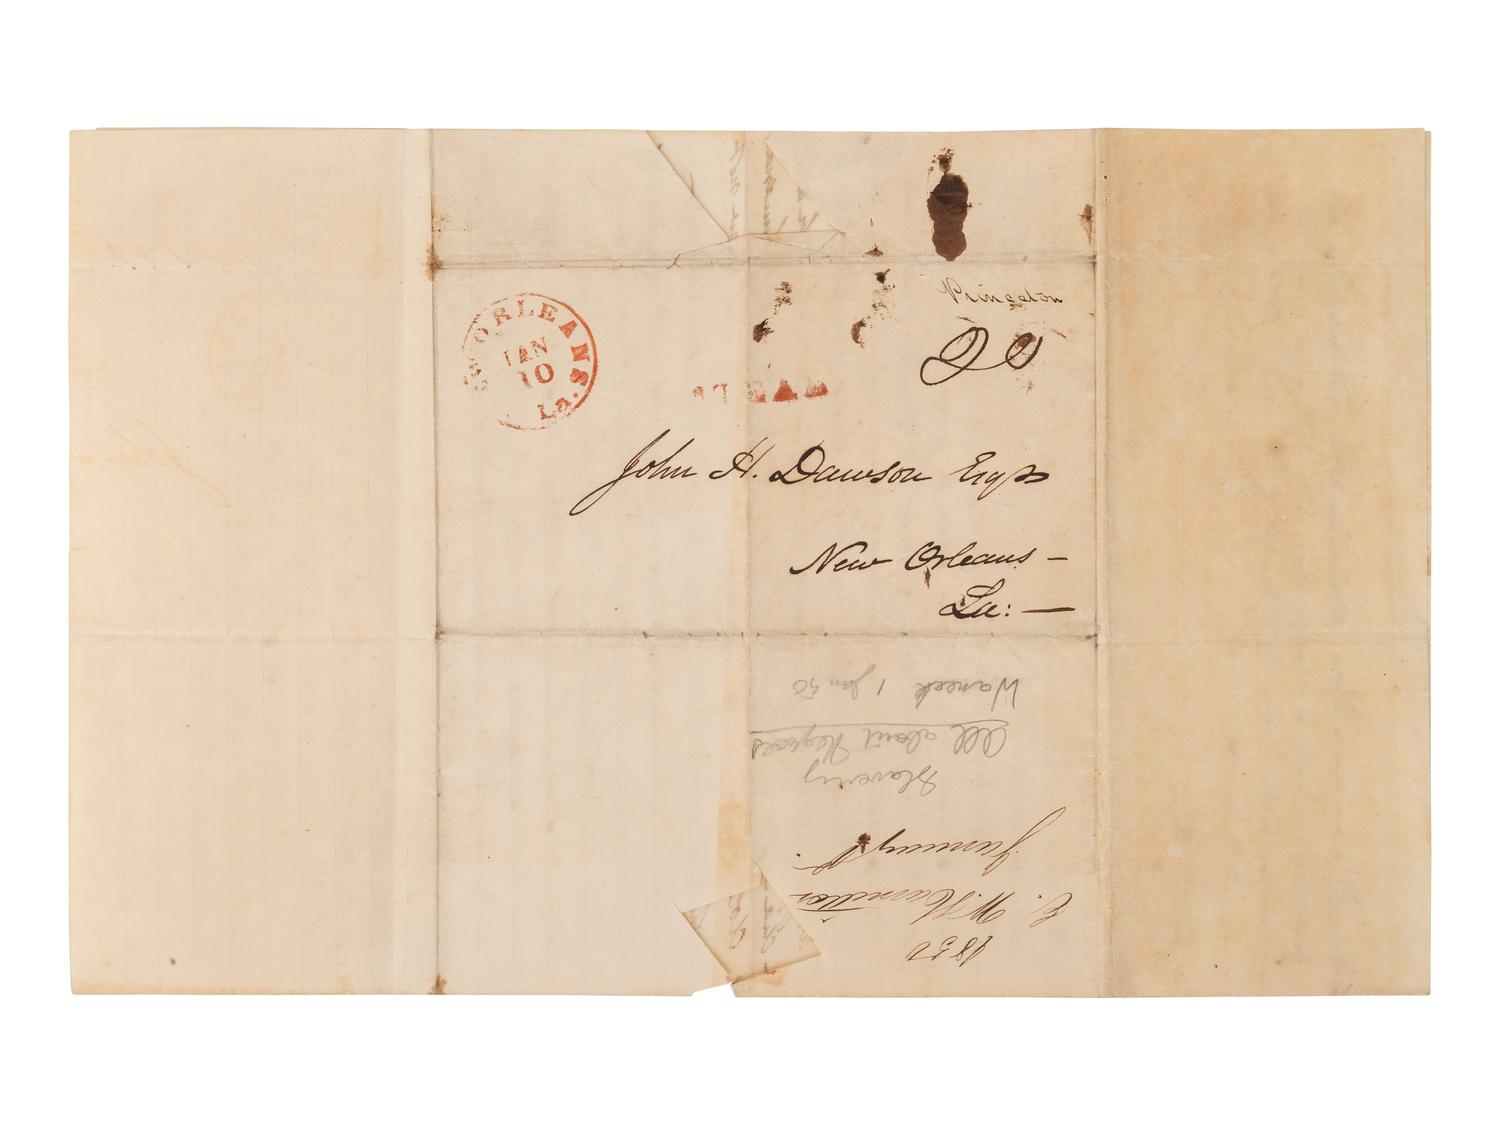 Princeton
20
ORLEANS
JAN
10
La.
STEAM
John H. Dawson Esqr
New Orleans —
La: —
1 Jan 50
All about Negroes
Slavery
January
1850